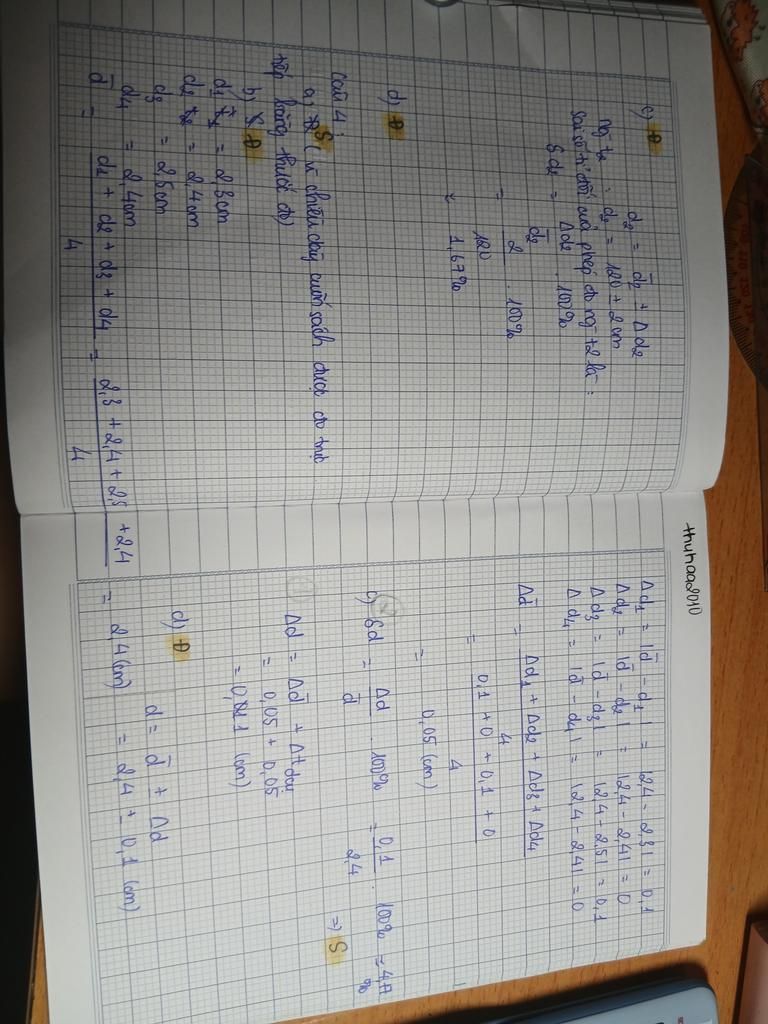 c) Đ
d₂ = d̄₂ ± Δd₂
ng t₂ : d₂ = 120 ± 2 cm
sai số tỉ đối của phép đo ng t2 là :
δd₂ = Δd₂ / d̄₂ . 100%
= 2 / 120 . 100%
≈ 1,67%
d) Đ
Câu 4 :
a) S ( vì chiều dày cuốn sách được đo trực
tiếp bằng thước đo)
b) Đ
d₁ = 2,3cm
d₂ = 2,4cm
d₃ = 2,5cm
d₄ = 2,4cm
d̄ = (d₁ + d₂ + d₃ + d₄) / 4 = (2,3 + 2,4 + 2,5 + 2,4) / 4 = 2,4 (cm)
thuhaa2010
Δd₁ = |d̄ - d₁| = |2,4 - 2,3| = 0,1
Δd₂ = |d̄ - d₂| = |2,4 - 2,4| = 0
Δd₃ = |d̄ - d₃| = |2,4 - 2,5| = 0,1
Δd₄ = |d̄ - d₄| = |2,4 - 2,4| = 0
Δd̄ = (Δd₁ + Δd₂ + Δd₃ + Δd₄) / 4
= (0,1 + 0 + 0,1 + 0) / 4
= 0,05 (cm)
c) δd = Δd / d̄ . 100% = 0,1 / 2,4 . 100% = 4,17%
=> S
Δd = Δd̄ + Δdc
= 0,05 + 0,05
= 0,1 (cm)
d) Đ
d = d̄ ± Δd
= 2,4 ± 0,1 (cm)